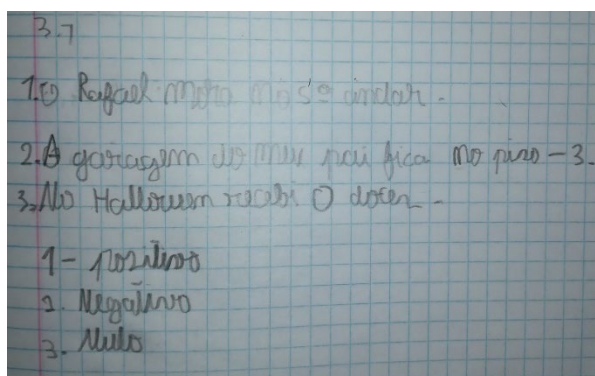 3.7
1.O Rafael mora no 5º andar.
2.A garagem do meu pai fica no piso -3.
3.No Hallowem recebi 0 doces.
1- positivo
2. Negativo
3. Nulo